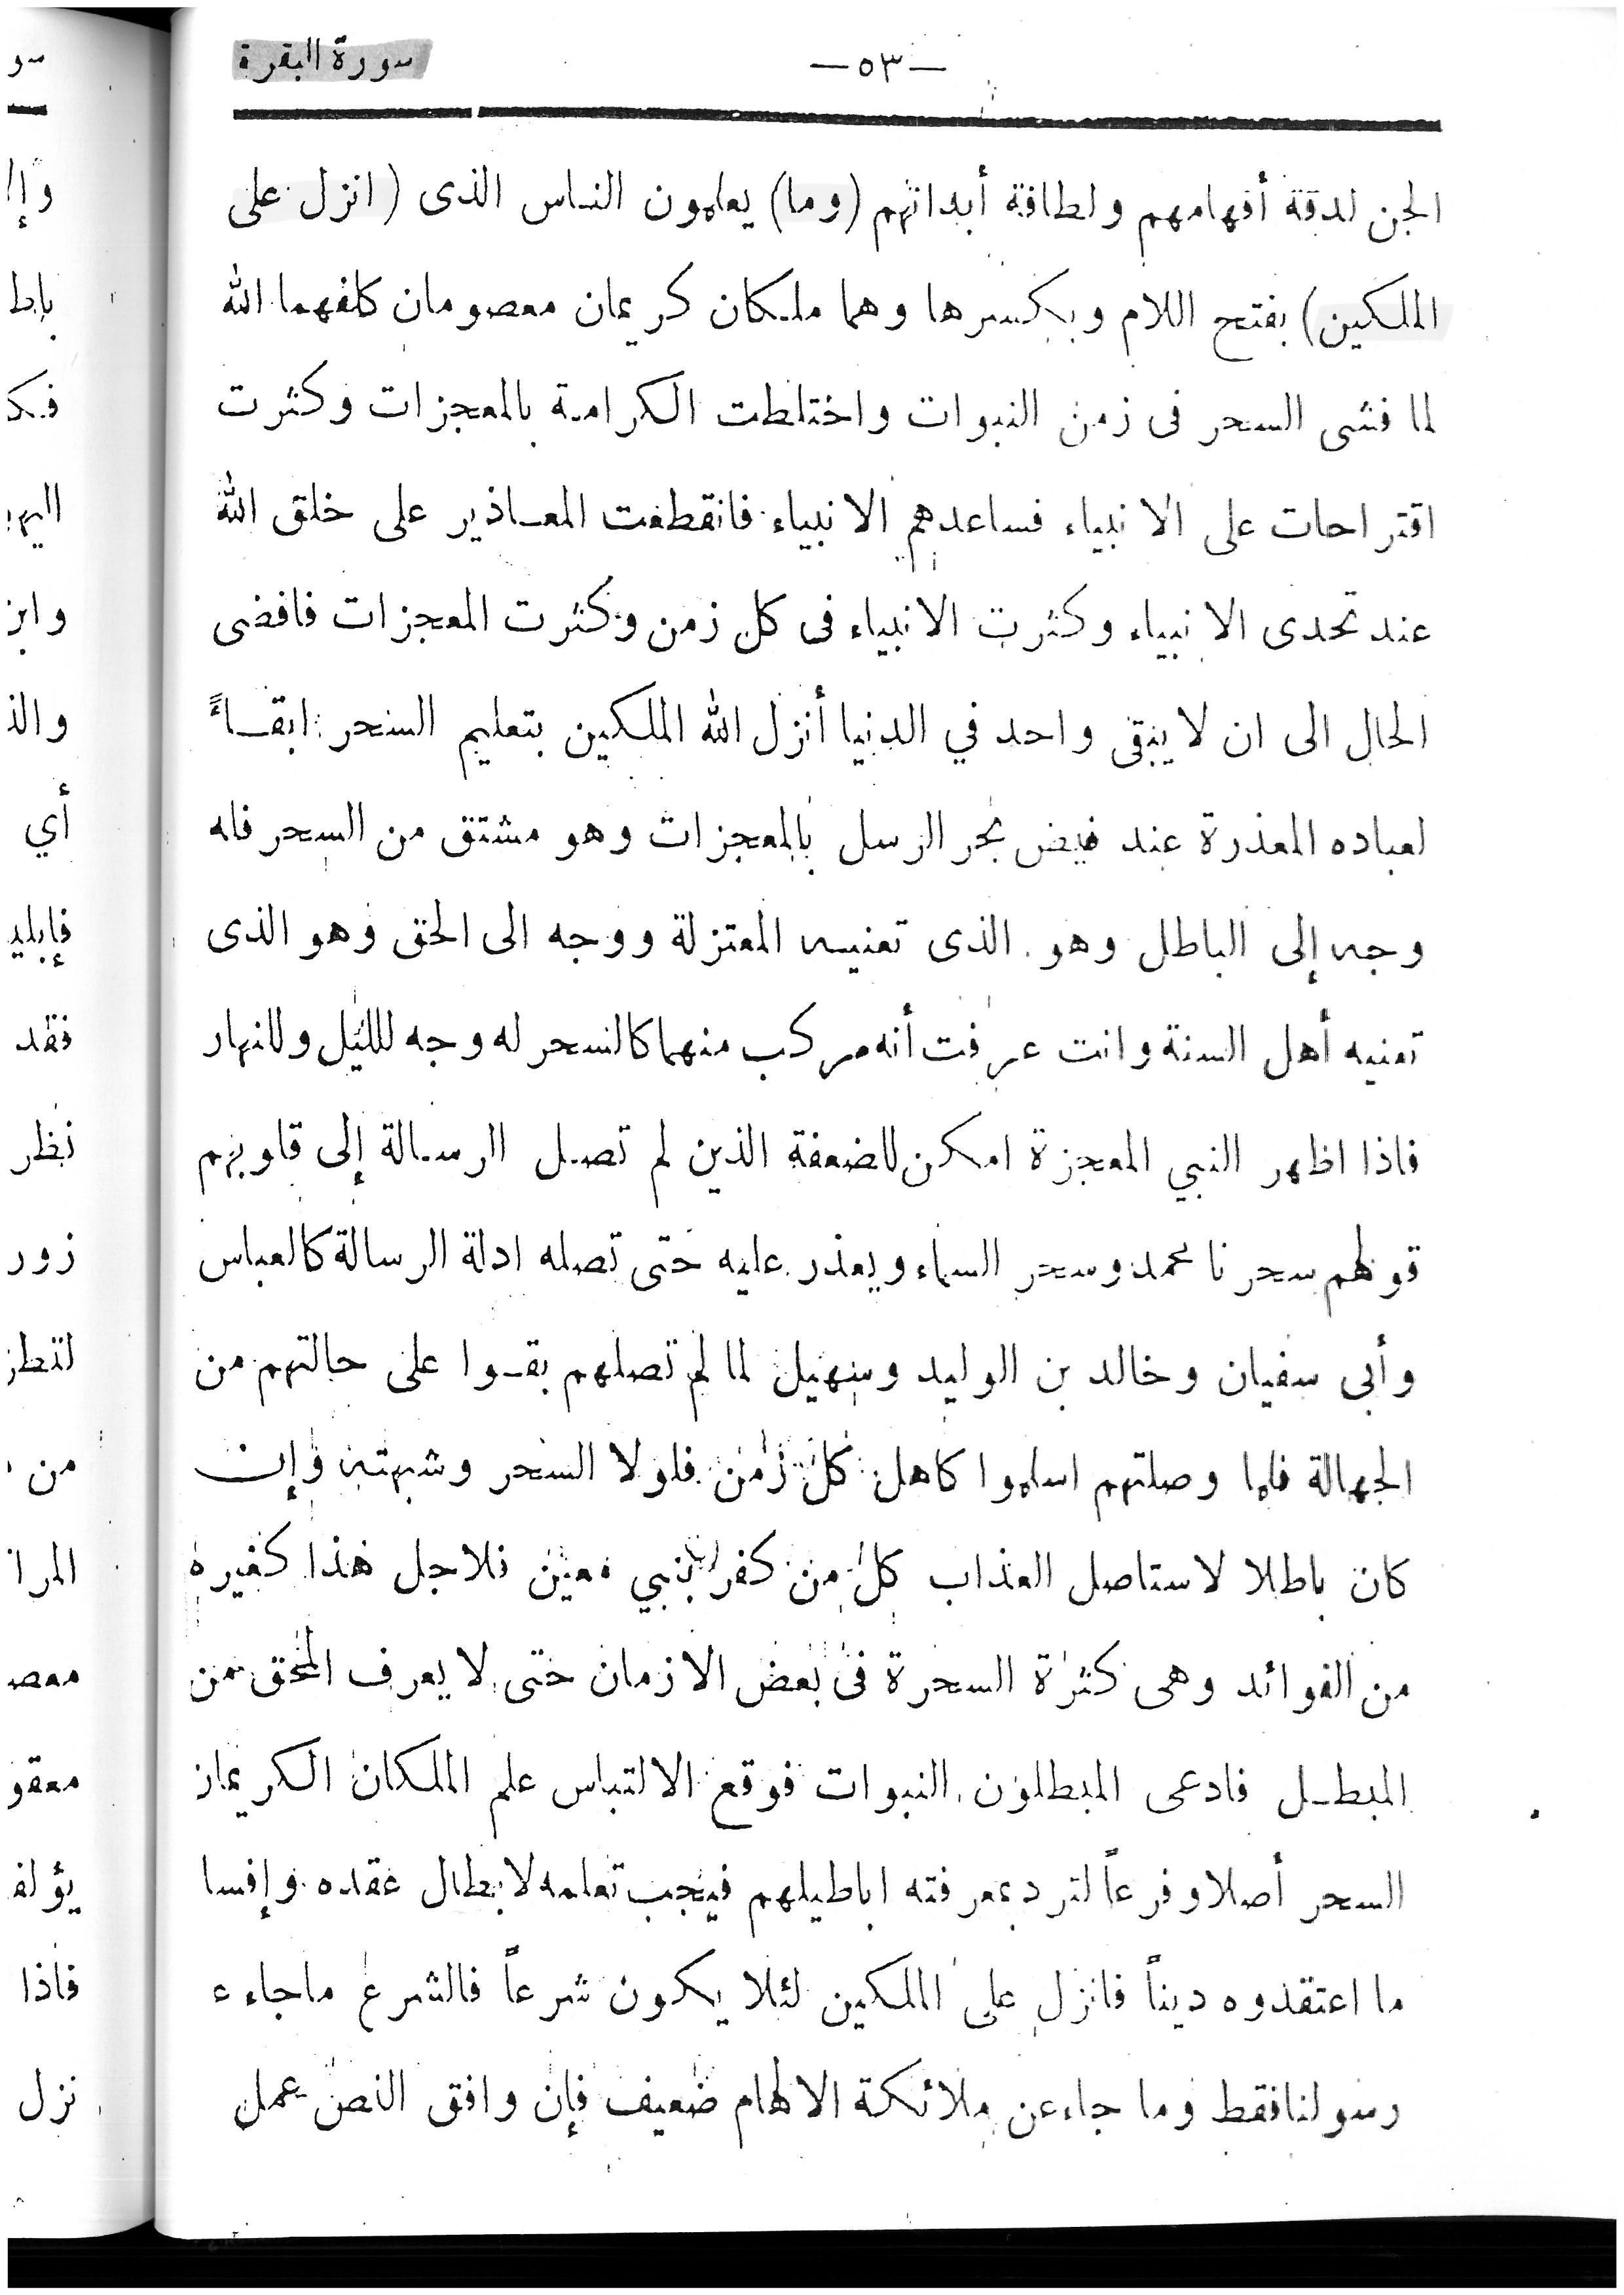 سورة البقرة
—٥٣—
الجن لدقة أفهامهم ولطافة أبدانهم (وما) يعلمون النـاس الذى (انزل على
الملكين) بفتح اللام وبكسرها وهما ملكان كريمان معصومان كلفهما الله
لما فشى السحر فى زمن النبوات واختلطت الكرامة بالمعجزات وكثرت
اقتراحات على الانبياء فساعدهم الانبياء فانقطعت المعـاذير على خلق الله
عند تحدى الانبياء وكثرت الانبياء فى كل زمن وكثرت المعجزات فافضى
الحال الى ان لا يبقى واحد في الدنيا أنزل الله الملكين بتعليم السحر ابقـاءً
لعباده المعذرة عند فيض بحر الرسل بالمعجزات وهو مشتق من السحر فله
وجه إلى الباطل وهو الذى تعنيـه المعتزلة ووجه الى الحق وهو الذى
تعنيه أهل السنة وانت عرفت أنه مركب منهما كالسحر له وجه لليل وللنهار
فاذا اظهر النبي المعجزة امكن للضعفة الذين لم تصـل الرسـالة إلى قلوبهم
قولهم سحرنا محمد وسحر السماء ويعذر عليه حتى تصله ادلة الرسالة كالعباس
وأبى سفيان وخالد بن الوليد وسهيل لما لم تصلهم بقـوا على حالتهم من
الجهالة فلما وصلتهم اسلموا كاهل كل زمن فلولا السحر وشبهته وإن
كان باطلا لاستاصل العذاب كل من كفر بنبي معين فلاجل هذا كغيره
من الفوائد وهى كثرة السحرة فى بعض الازمان حتى لا يعرف المحق من
المبطـل فادعى المبطلون النبوات فوقع الالتباس علم الملكان الكريمان
السحر أصلا وفرعاً لترد بمعرفته اباطيلهم فيجب تعلمه لابطال عقده وإفسا
ما اعتقدوه ديناً فانزل على الملكين لئلا يكون شرعاً فالشرع ما جاء ء
رسولنا فقط وما جاء عن ملائكة الالهام ضعيف فإن وافق النص عمل